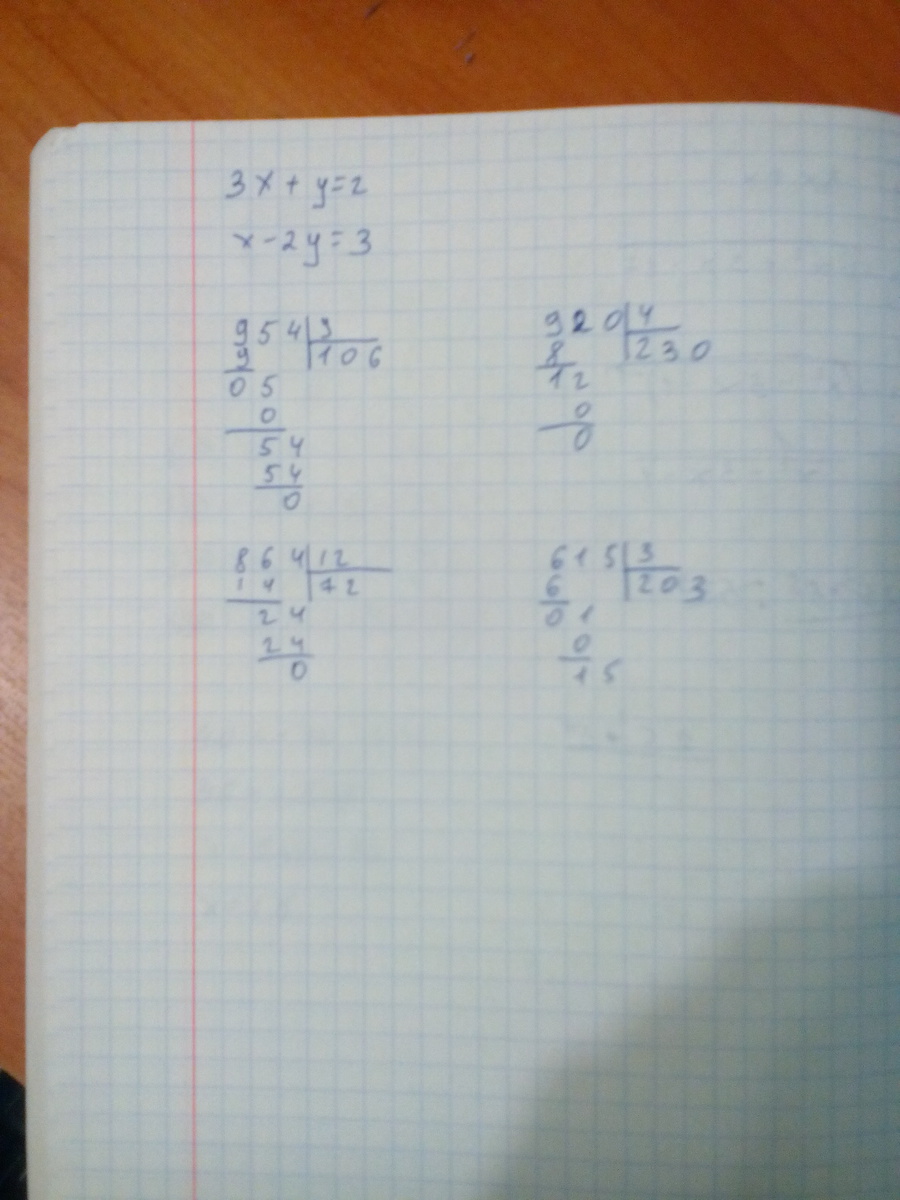 3x + y = 2
x - 2y = 3
954 | 3
9 | 106
05
0
54
54
0
920 | 4
8 | 230
12
0
0
864 | 12
14 | 72
24
24
0
615 | 3
6 | 203
01
0
15